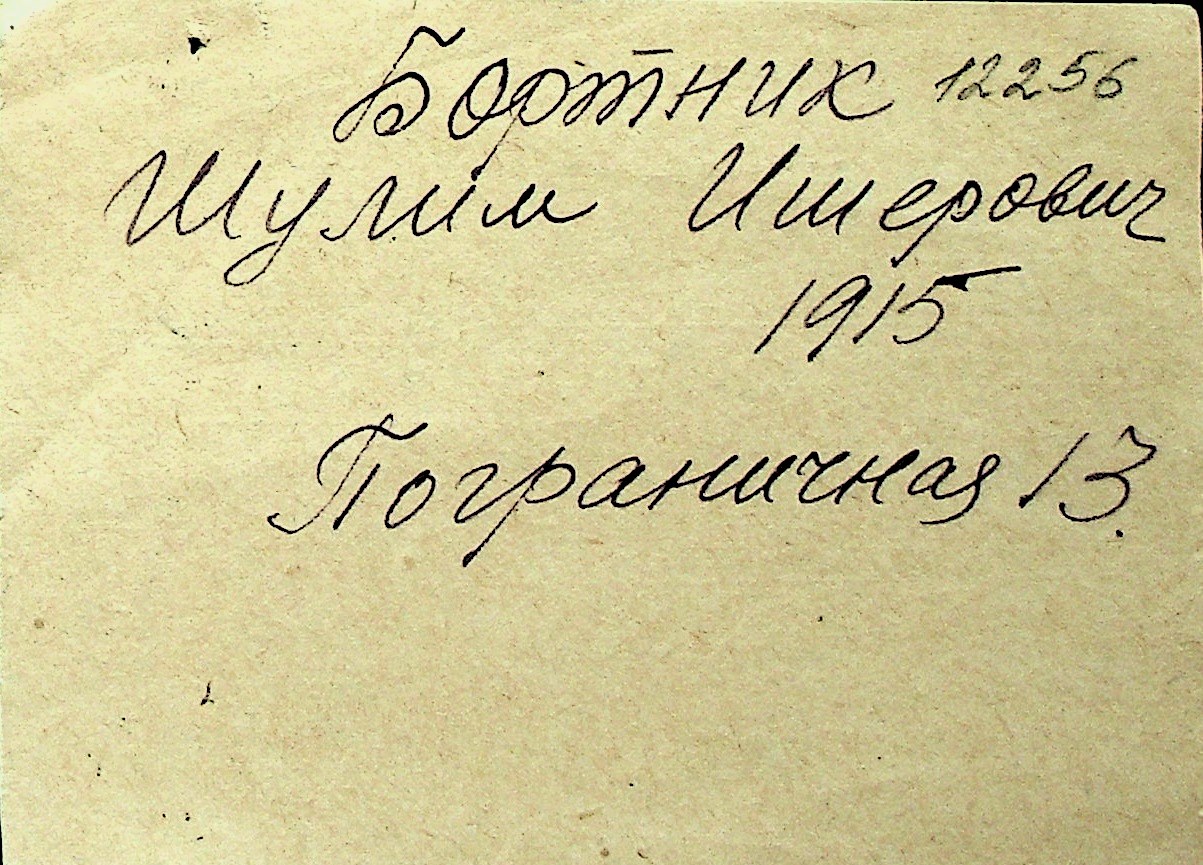 Бортник 12256
Шулим Ишерович
1915
Пограничная 13.